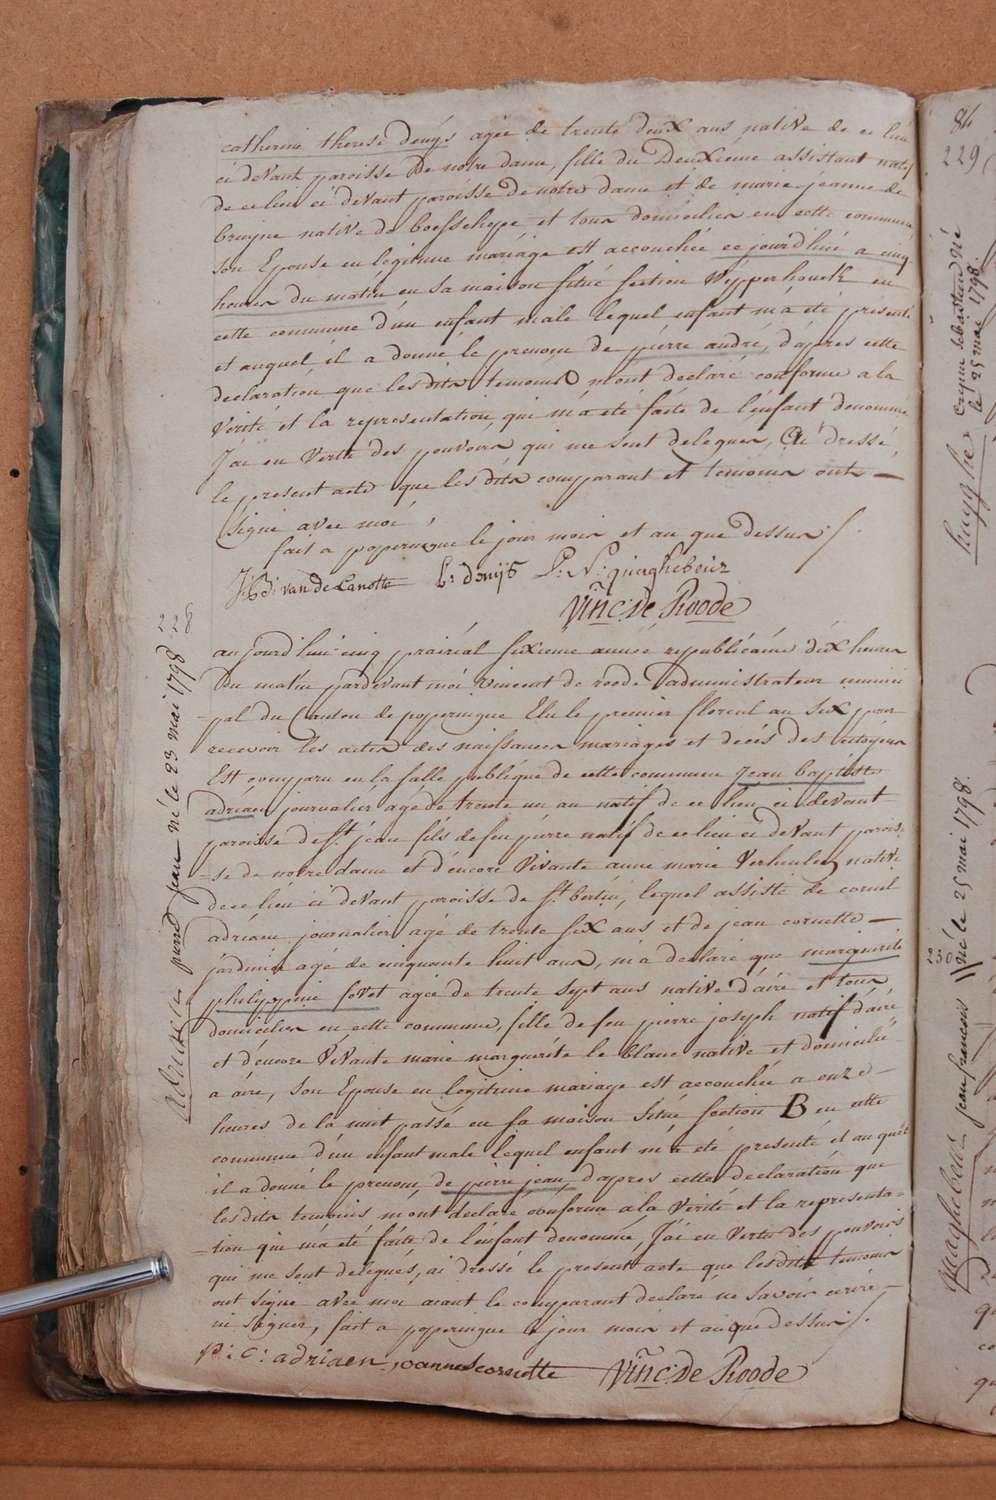 catherine therese denys agée de trente deux ans native de ce lieu
ci devant paroisse de notre dame, fille du Deuxieme assistant natif
de ce lieu ci devant paroisse de notre dame et de marie jeanne de
bruyne native de boesschepe et tous domicilies en cette commune
son Epouse en légitime mariage est accouchée ce jourd'hui a cinq
heures du matin en sa maison situé section Pypperhouck en
cette commune d'un enfant male lequel enfant m'a été présenté
et auquel il a donné le prenom de pierre andré, d'après cette
declaration que les dits temoins m'ont declaré conforme a la
vérité et la representation, qui m'a été faite de l'enfant denommé
J'ai en vertu des pouvoirs qui me sont delegues, ai dressé
le present acte que les dits comparant et temoins ont
signé avec moi,
fait a poperingue le jour mois et an que dessus
van de Lanotte L: denijs P: N: quaghebeur
Vinc: De Roode
228
adriaen pierre jean né le 23 mai 1798
aujourd'hui cinq prairial sixieme année republicaine dix heures
du matin pardevant moi vincent de roode administrateur munici
-pal du Canton de poperingue Elu le premier floreal an six pour
recevoir les actes des naissances mariages et décés des citoyens
Est comparu en la salle publique de cette commune jean baptiste
adriaen journalier agé de trente un an natif de ce lieu ci devant
paroisse de st. jean fils de feu pierre natif de ce lieu ci devant parois
-se de notre dame et d'encore vivante anne marie Verheulen native
de ce lieu ci devant paroisse de st. bertin, lequel assisté de cornil
adriaen journalier agé de trente six ans et de jean cornette
jardinier agé de cinquante huit ans, m'a declaré que marguerite
philippine fovet agée de trente sept ans native d'aire et tous
domicilies en cette commune, fille de feu pierre joseph natif d'aire
et d'encore vivante marie marguerite le blanc native et domiciliée
a aire, son Epouse en legitime mariage est accouchée a onze
heures de la nuit passé en sa maison situé section B en cette
commune d'un enfant male lequel enfant m'a été presenté et au quel
il a donné le prenom de pierre jean, d'apres cette declaration que
les dits temoins m'ont declaré conforme a la vérité et la representa-
-tion qui m'a été faite de l'enfant denommé, J'ai en vertu des pouvoirs
qui me sont delegués, ai dressé le present acte que les dits temoins
ont signe avec moi aiant le comparant declaré ne savoir ecrire
ni signer, fait a poperingue le jour mois et an que dessus
P: C: adriaen joannes cornette Vinc: De Roode
84
229
huyghe né le 25 mai 1798.
quaghebeur jean francois né le 25 mai 1798.